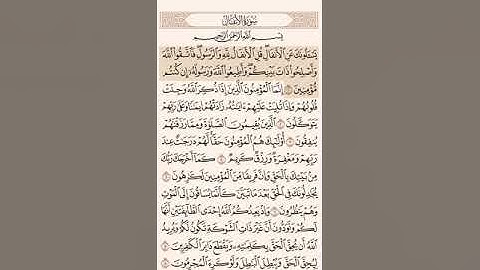 سورة الأنفال
بسم الله الرحمن الرحيم
يسئلونك عن الأنفال قل الأنفال لله والرسول فاتقوا الله
وأصلحوا ذات بينكم وأطيعوا الله ورسوله إن كنتم
مؤمنين ١ إنما المؤمنون الذين إذا ذكر الله وجلت
قلوبهم وإذا تليت عليهم ءايته زادتهم إيمنا وعلى ربهم
يتوكلون ٢ الذين يقيمون الصلوة ومما رزقنهم
ينفقون ٣ أولئك هم المؤمنون حقا لهم درجت عند
ربهم ومغفرة ورزق كريم ٤ كما أخرجك ربك
من بيتك بالحق وإن فريقا من المؤمنين لكرهون ٥
يجدلونك في الحق بعد ما تبين كأنما يساقون إلى الموت
وهم ينظرون ٦ وإذ يعدكم الله إحدى الطائفتين أنها
لكم وتودون أن غير ذات الشوكة تكون لكم ويريد
الله أن يحق الحق بكلمته ويقطع دابر الكفرين ٧
ليحق الحق ويبطل البطل ولو كره المجرمون ٨